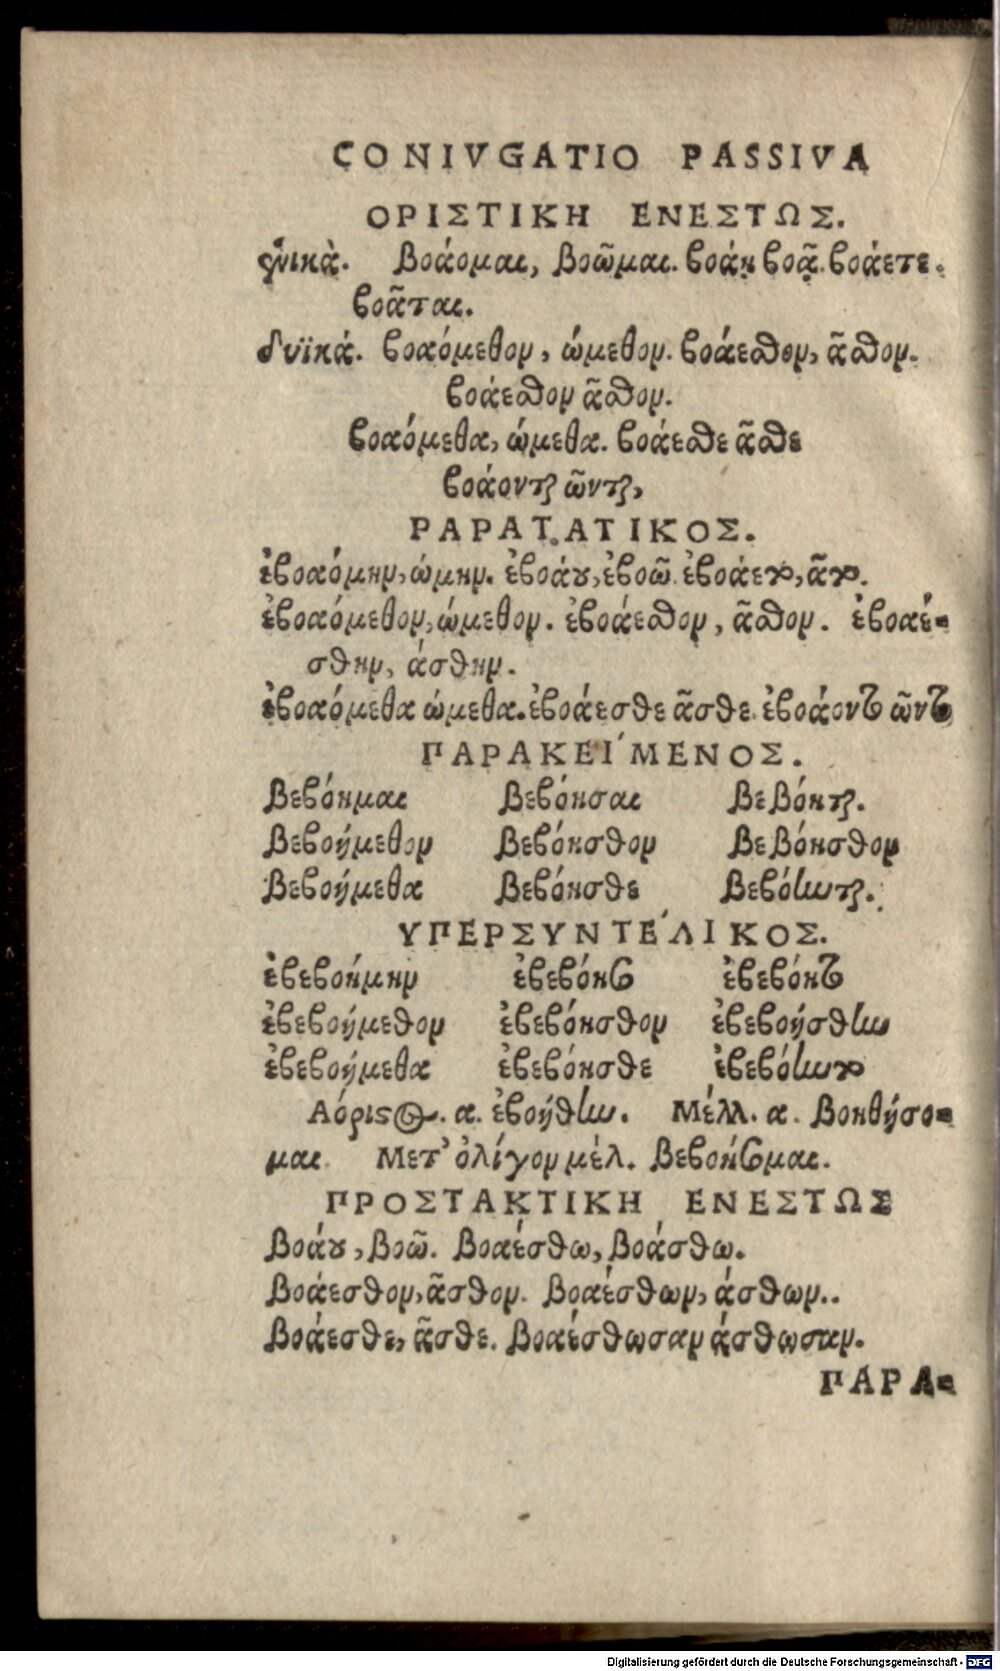 CONIVGATIO PASSIVA
ΟΡΙΣΤΙΚΗ ΕΝΕΣΤΩΣ.
ἑνικὰ. Βοάομαι, βοῶμαι. βοάῃ βοᾷ. βοάετε.
βοᾶται.
δυϊκά. βοαόμεθον, ώμεθον. βοάεσθον, ᾶσθον.
βοάεσθον ᾶσθον.
βοαόμεθα, ώμεθα. βοάεσθε ᾶσθε
βοάονται ῶνται,
ΡΑΡΑΤΑΤΙΚΟΣ.
ἐβοαόμην, ώμην. ἐβοάου, ἐβοῶ. ἐβοάετο, ᾶτο.
ἐβοαόμεθον, ώμεθον. ἐβοάεσθον, ᾶσθον. ἐβοαέ-
σθην, άσθην.
ἐβοαόμεθα ώμεθα. ἐβοάεσθε ᾶσθε. ἐβοάοντο ῶντο
ΠΑΡΑΚΕΙ΄ΜΕΝΟΣ.
Βεβόημαι Βεβόησαι Βεβόηται.
Βεβοήμεθον Βεβόησθον Βεβόησθον
Βεβοήμεθα Βεβόησθε Βεβόηνται.
ΥΠΕΡΣΥΝΤΕ΄ΛΙΚΟΣ.
ἐβεβοήμην ἐβεβόησο ἐβεβόητο
ἐβεβοήμεθον ἐβεβόησθον ἐβεβοήσθην
ἐβεβοήμεθα ἐβεβόησθε ἐβεβόηντο
Αόριστος. α. ἐβοήθην. Μέλλ. α. βοηθήσο-
μαι Μετ' ὀλίγον μέλ. βεβοήσομαι.
ΠΡΟΣΤΑΚΤΙΚΗ ΕΝΕΣΤΩΣ
Βοάου, βοῶ. βοαέσθω, βοάσθω.
Βοάεσθον, ᾶσθον. βοαέσθων, άσθων..
Βοάεσθε, ᾶσθε. βοαέσθωσαν άσθωσαν.
ΠΑΡΑ-
Digitalisierung gefördert durch die Deutsche Forschungsgemeinschaft - DFG